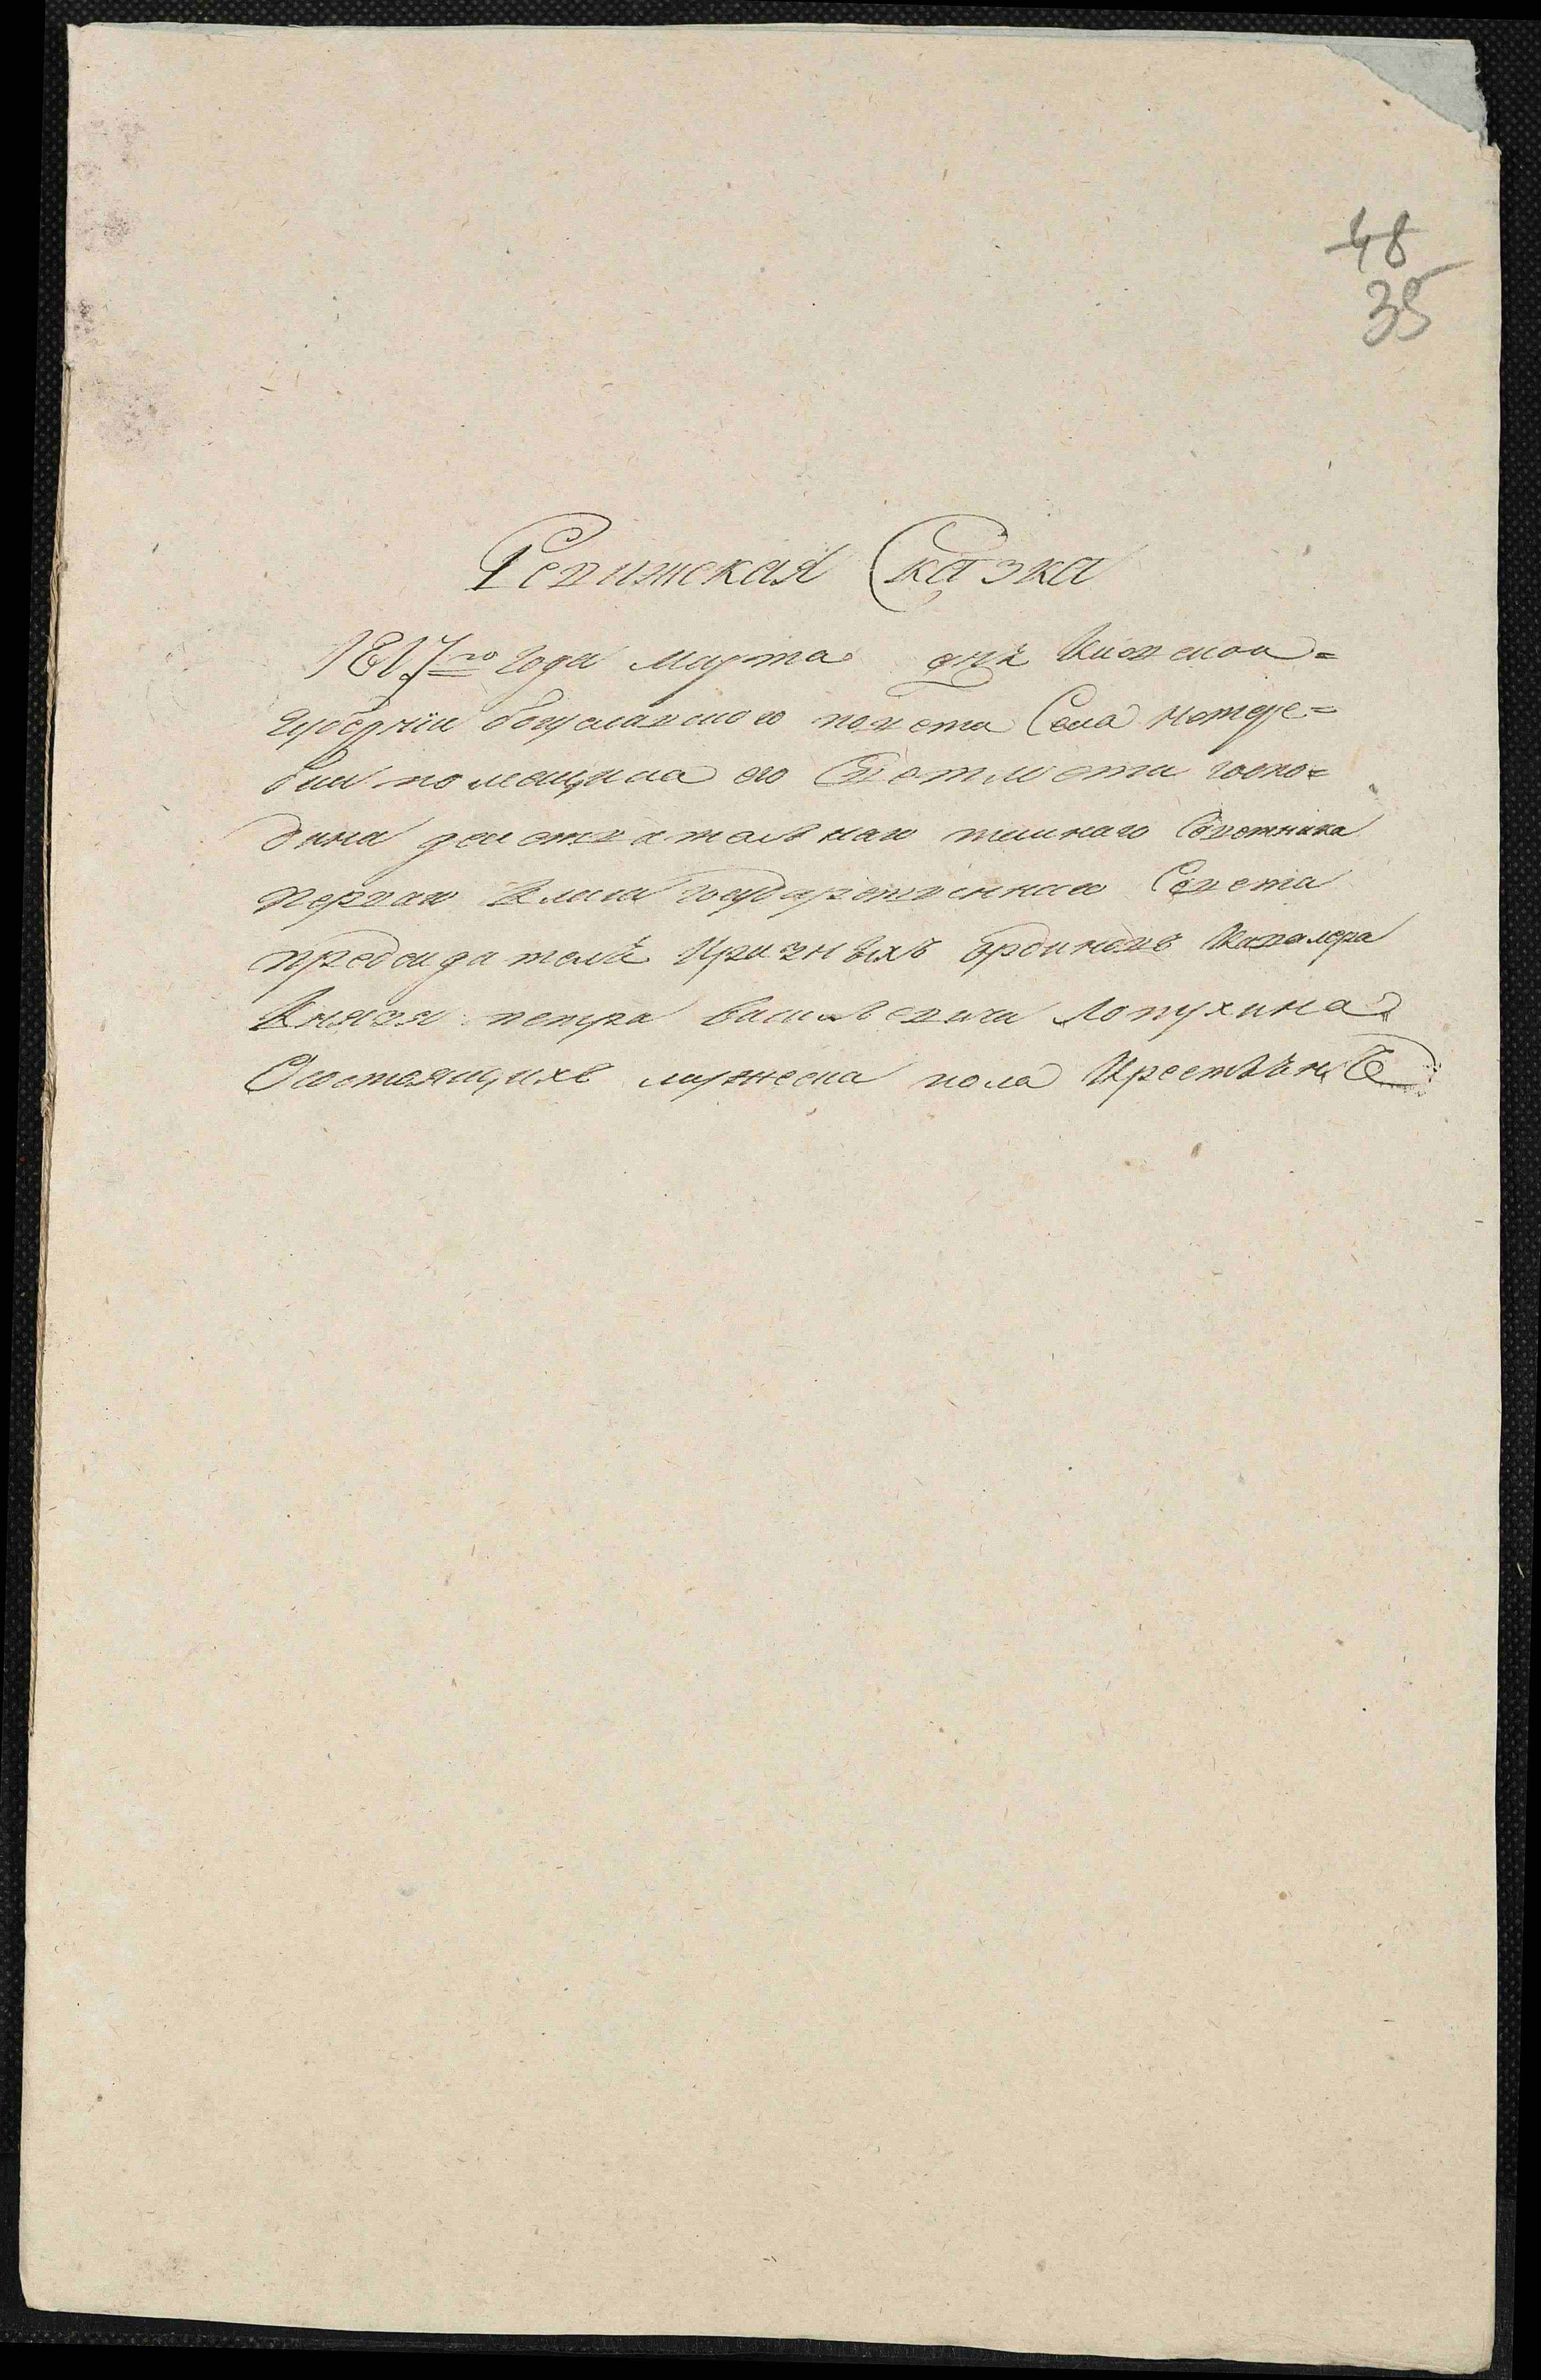 48
35
Ревижская Сказка
1817го года марта дня Киевской=
губернїи богуславского повета Села нетере=
бки помещика его Светлости госпо=
дина действительнаго тайнаго Советника
первого класа государственнаго Совета
председателя Изразныхъ орденовъ Кавалера
Князя петра васильевича Лопухина
О состоящихъ мужеска пола Крестьянъ